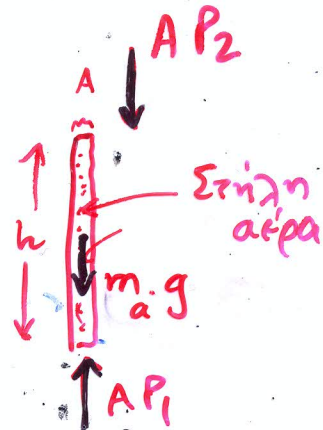 A P₂
A
Στήλη
αέρα
h
mₐ.g
A P₁